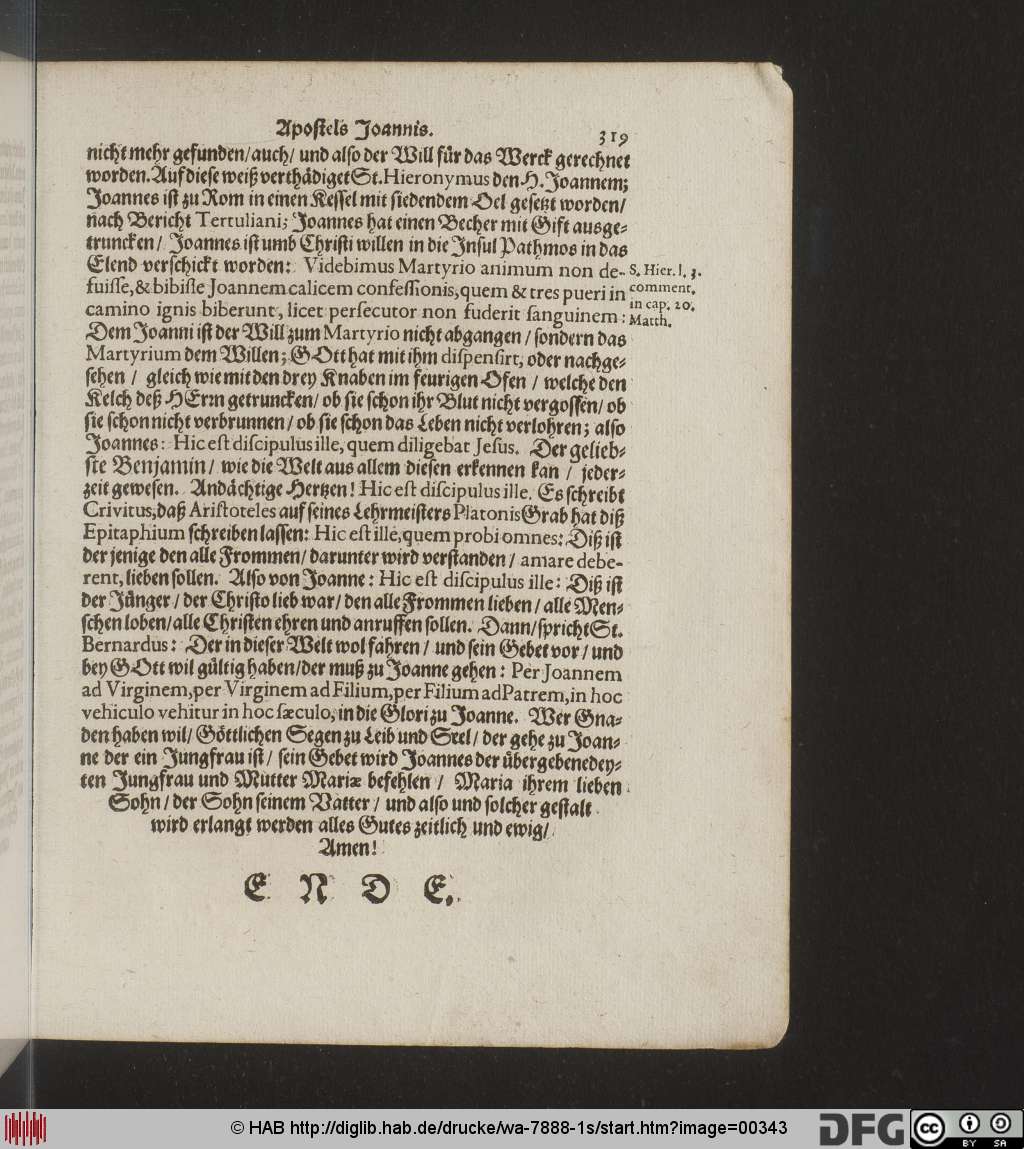 Apostels Joannis.
319
nicht mehr gefunden/auch/ und also der Will für das Werck gerechnet
worden. Auf diese weiß verthädiget St. Hieronymus den H. Joannem;
Joannes ist zu Rom in einen Kessel mit siedendem Oel gesetzt worden/
nach Bericht Tertuliani; Joannes hat einen Becher mit Gift ausge-
truncken/ Joannes ist umb Christi willen in die Insul Pathmos in das
Elend verschickt worden: Videbimus Martyrio animum non de-
fuiſſe,& bibiſſe Joannem calicem confeſſionis,quem & tres pueri in
camino ignis biberunt, licet perſecutor non fuderit ſanguinem:
S. Hier. l. 3.
comment.
in cap. 20.
Matth.
Dem Joanni ist der Will zum Martyrio nicht abgangen/ sondern das
Martyrium dem Willen; GOtt hat mit ihm diſpenſirt, oder nachge-
sehen / gleich wie mit den drey Knaben im feurigen Ofen / welche den
Kelch deß HErrn getruncken/ ob sie schon ihr Blut nicht vergossen/ ob
sie schon nicht verbrunnen/ ob sie schon das Leben nicht verlohren; also
Joannes: Hic eſt diſcipulus ille, quem diligebat Jeſus. Der gelieb-
ste Benjamin/ wie die Welt aus allem diesen erkennen kan / jeder-
zeit gewesen. Andächtige Hertzen! Hic eſt diſcipulus ille. Es schreibt
Crivitus,daß Ariſtoteles auf seines Lehrmeisters Platonis Grab hat diß
Epitaphium schreiben lassen: Hic eſt ille,quem probi omnes: Diß ist
der jenige den alle Frommen/ darunter wird verstanden/ amare debe-
rent, lieben sollen. Also von Joanne: Hic eſt diſcipulus ille: Diß ist
der Jünger/ der Christo lieb war/ den alle Frommen lieben/ alle Men-
schen loben/alle Christen ehren und anruffen sollen. Dann/spricht St.
Bernardus: Der in dieser Welt wol fahren/ und sein Gebet vor/ und
bey GOtt wil gültig haben/der muß zu Joanne gehen: Per Joannem
ad Virginem,per Virginem ad Filium,per Filium ad Patrem,in hoc
vehiculo vehitur in hoc ſæculo, in die Glori zu Joanne. Wer Gna-
den haben wil/ Göttlichen Segen zu Leib und Seel/ der gehe zu Joan-
ne der ein Jungfrau ist/ sein Gebet wird Joannes der übergebenedey-
ten Jungfrau und Mutter Mariæ befehlen / Maria ihrem lieben
Sohn/ der Sohn seinem Vatter/ und also und solcher gestalt
wird erlangt werden alles Gutes zeitlich und ewig/
Amen!
E N D E.
© HAB http://diglib.hab.de/drucke/wa-7888-1s/start.htm?image=00343
DFG
cc
BY SA